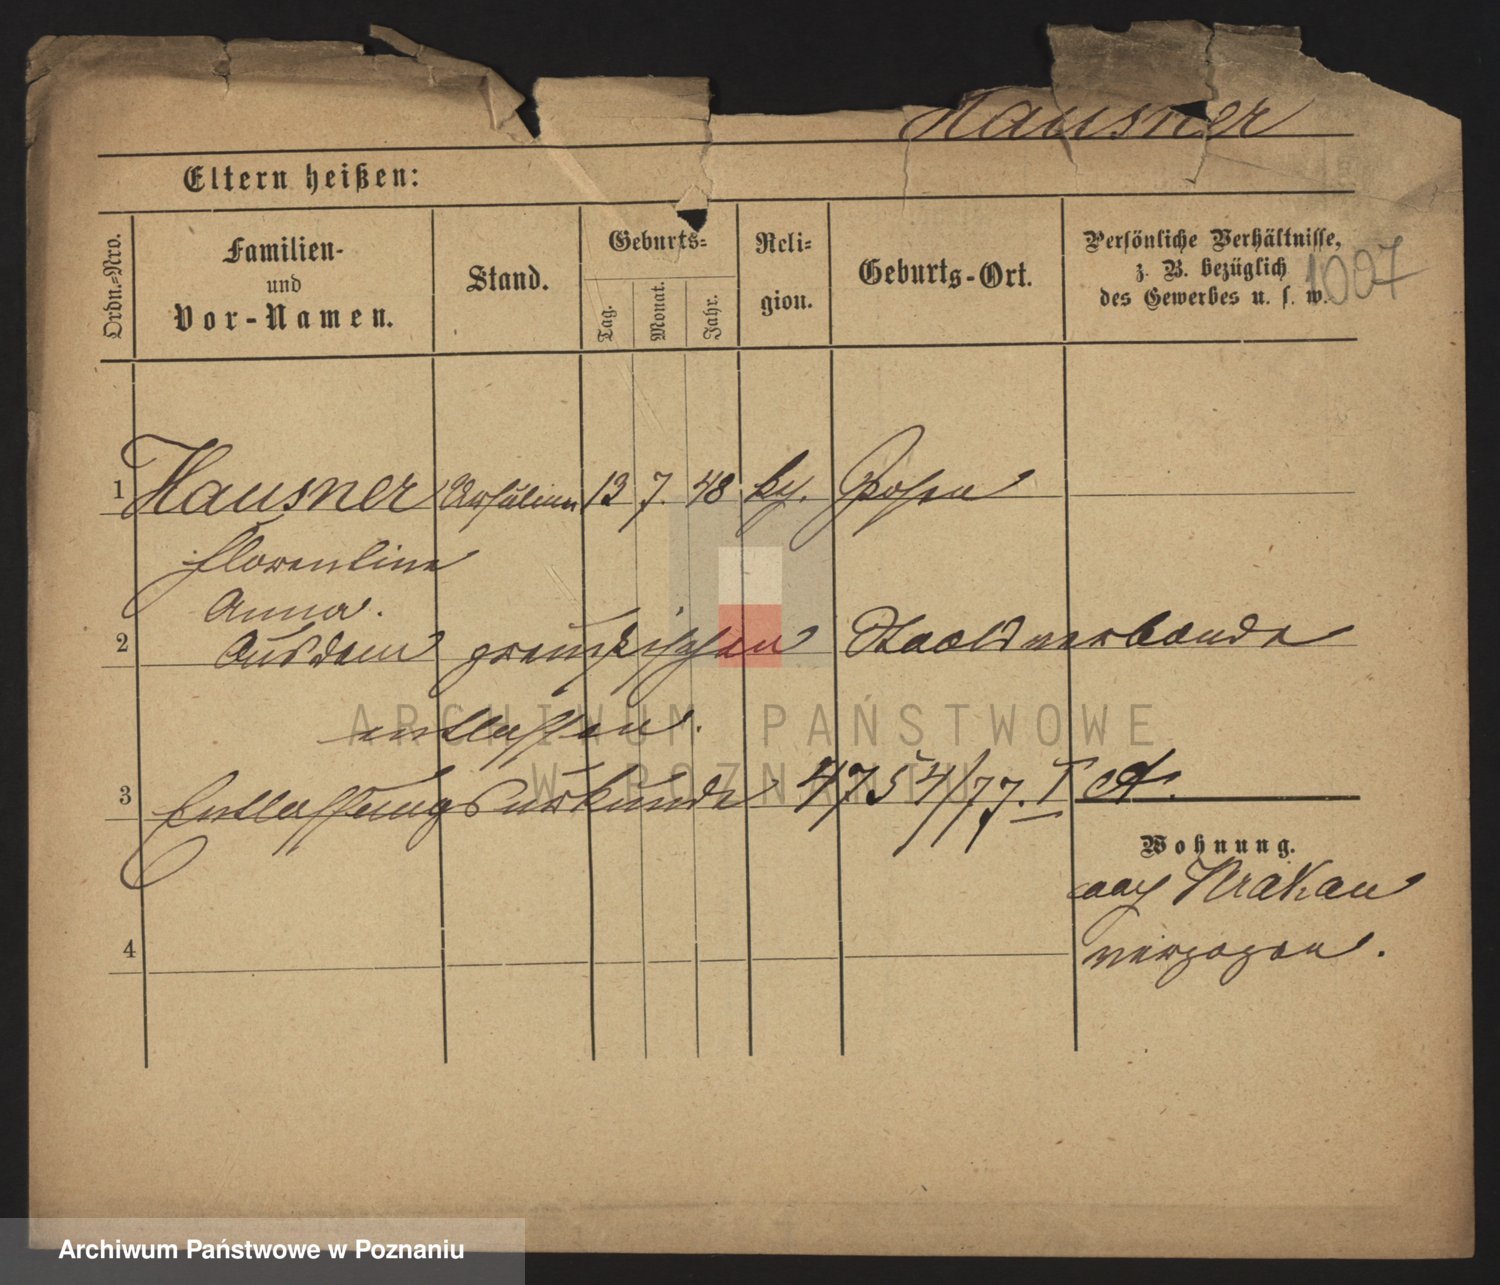 Hausner
Eltern heißen:
Ordn.-Nro.
Familien-
und
Vor-Namen.
Stand.
Geburts-
Tag.
Monat.
Jahr.
Reli-
gion.
Geburts-Ort.
Persönliche Verhältnisse,
z. B. bezüglich
des Gewerbes u. s. w.
1007
1 Hausner Ursuline 13 7. 48 kth. Posen
Florentine
Anna.
2 Aus dem preußischen Staatsverbande
entlassen.
3 Entlassungsurkunde 4754/77. I A.
Wohnung.
nach Krakau
verzogen.
4
ARCHIWUM PAŃSTWOWE
W POZNANIU
Archiwum Państwowe w Poznaniu